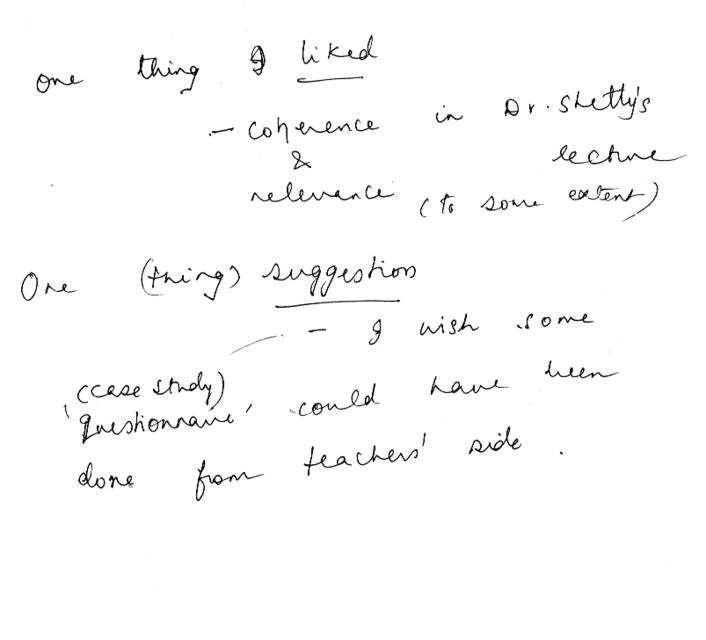 one thing I liked
– coherence in Dr. Shetty's
& lecture
relevance (to some extent)
One (thing) suggestion
– I wish some
(case study)
'questionnaire' could have been
done from teachers' side.